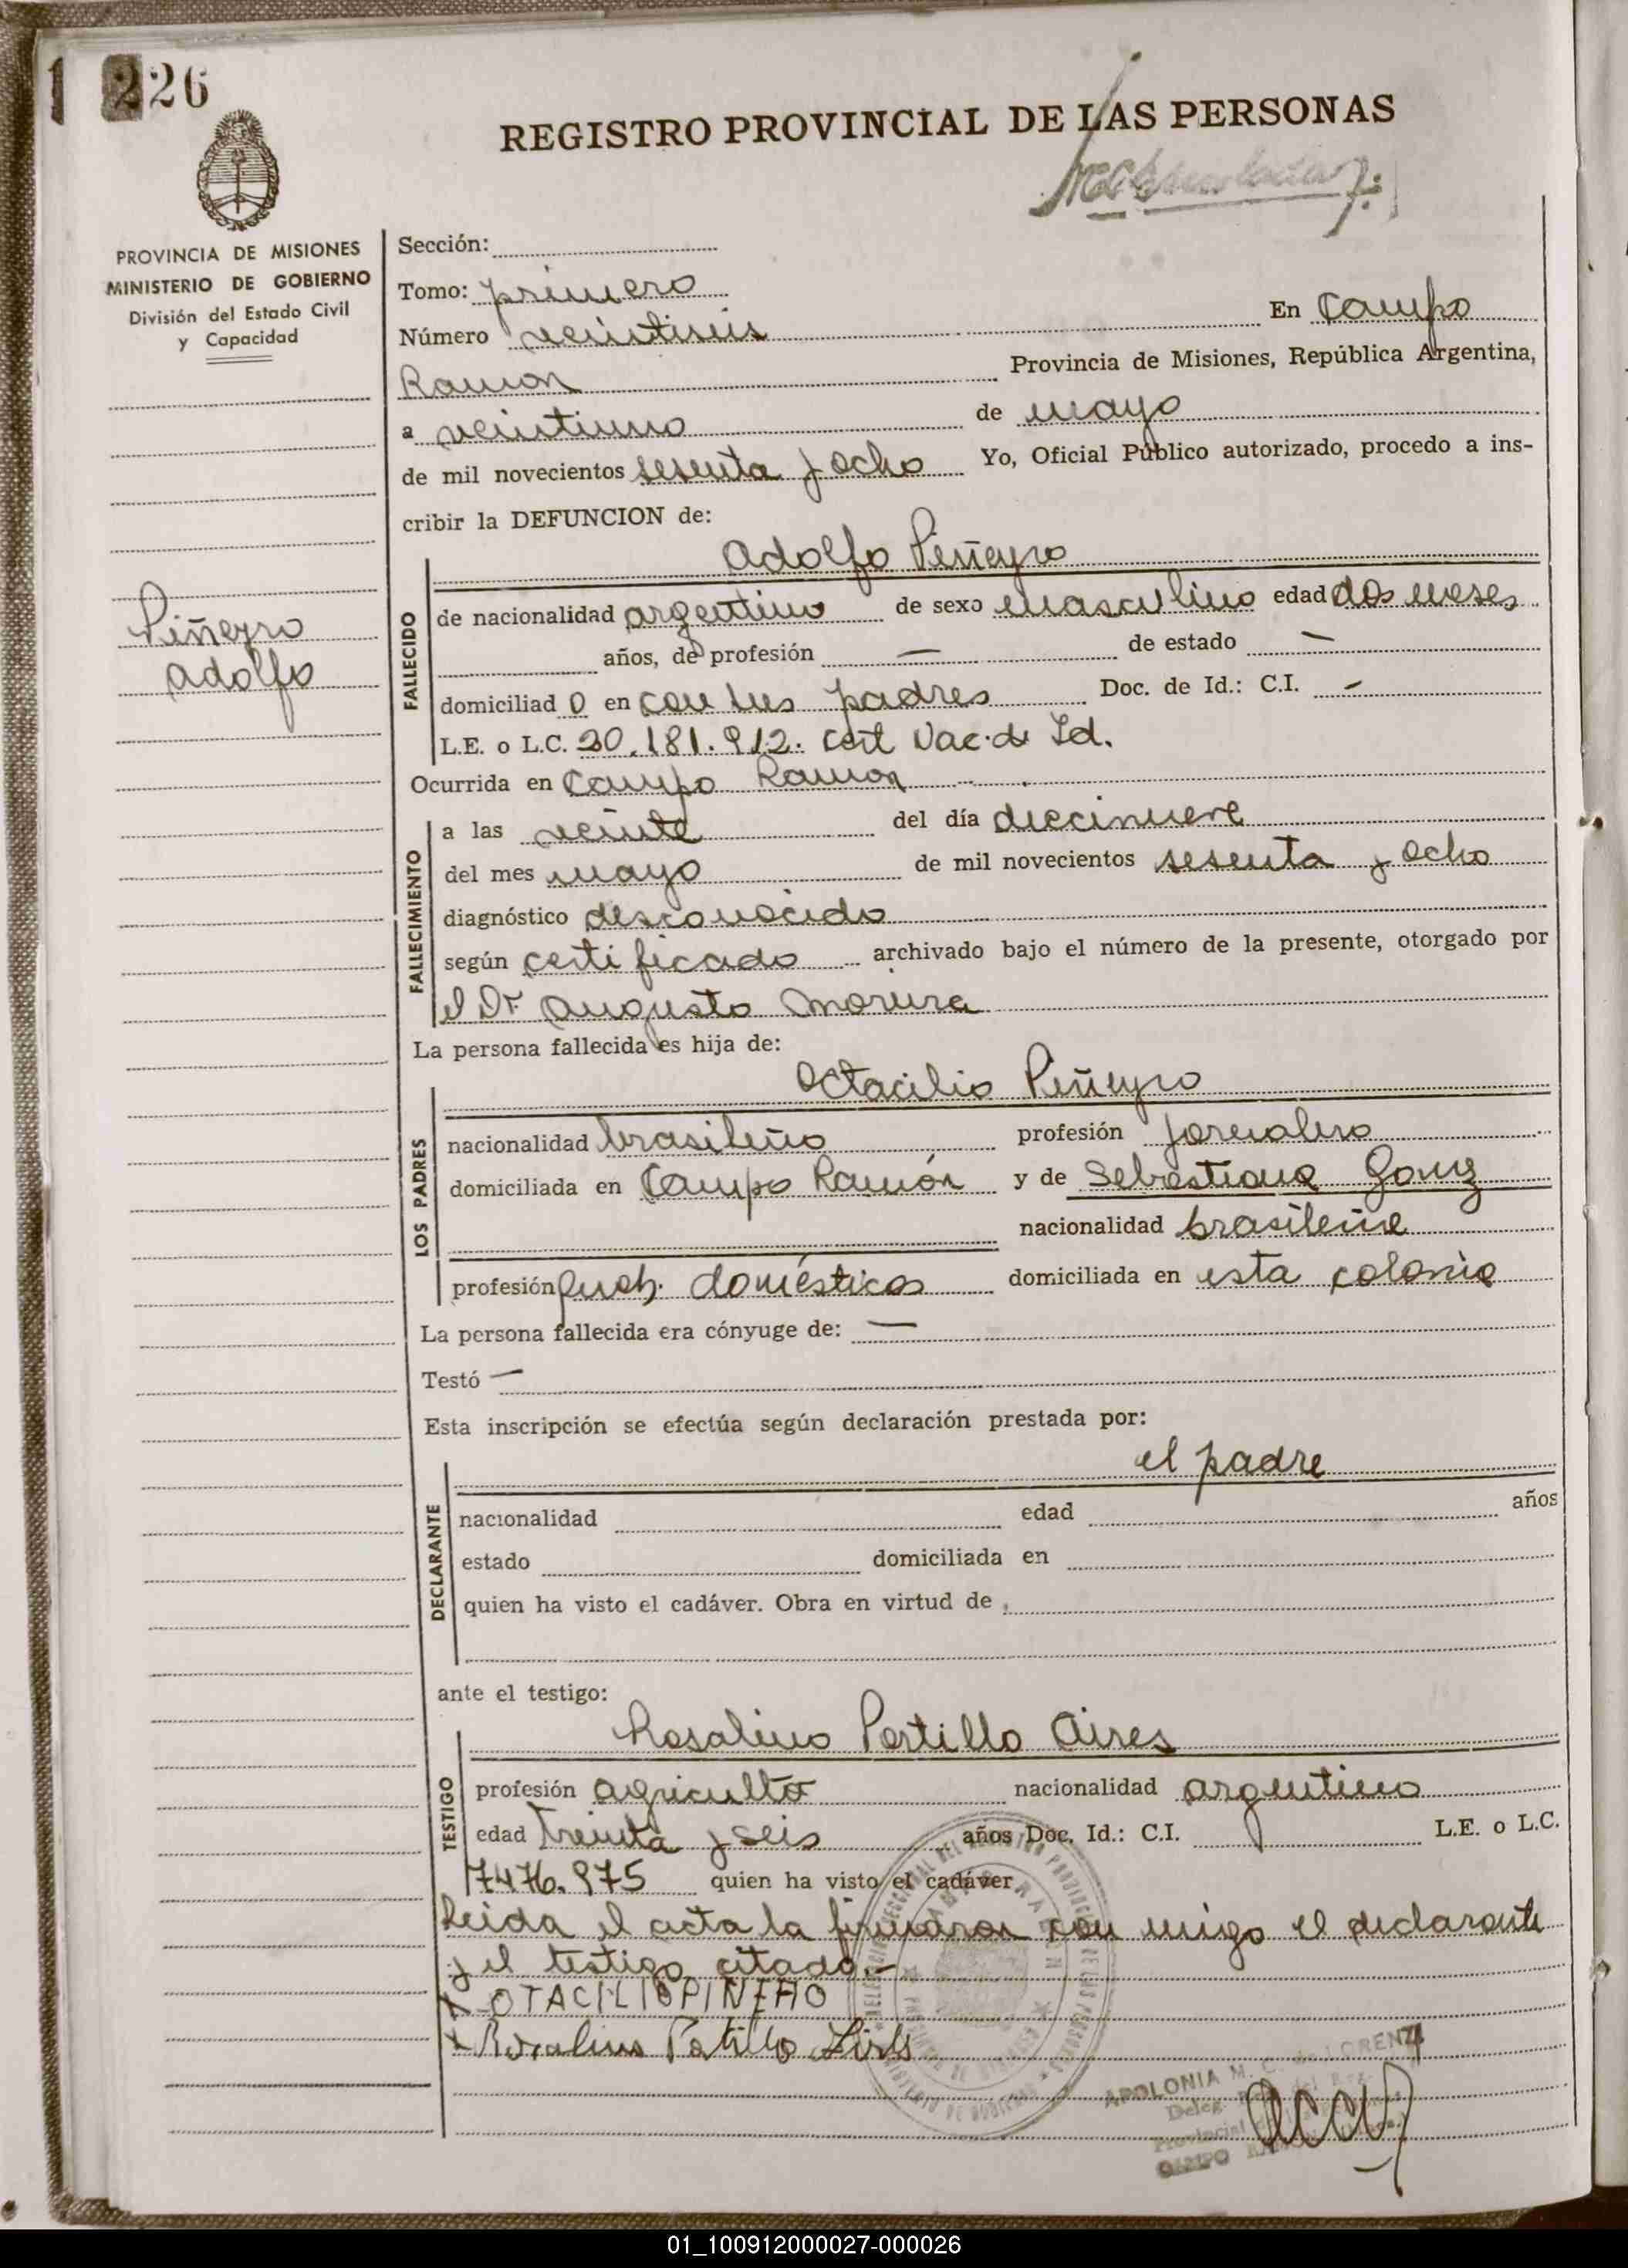 1 226
REGISTRO PROVINCIAL DE LAS PERSONAS
PROVINCIA DE MISIONES
MINISTERIO DE GOBIERNO
División del Estado Civil
y Capacidad
Piñeyro
Adolfo
Sección:
Tomo: primero
Número veintiseis En Campo
Ramon Provincia de Misiones, República Argentina,
a veintiuno de mayo
de mil novecientos sesenta y ocho Yo, Oficial Público autorizado, procedo a ins-
cribir la DEFUNCION de:
Adolfo Piñeyro
FALLECIDO
de nacionalidad argentino de sexo masculino edad dos meses
años, de profesión — de estado —
domiciliad o en con sus padres Doc. de Id.: C.I. -
L.E. o L.C. 20.181.912. Cert Nac. de Id.
Ocurrida en Campo Ramon
FALLECIMIENTO
a las veinte del día diecinueve
del mes mayo de mil novecientos sesenta y ocho
diagnóstico desconocido
según certificado archivado bajo el número de la presente, otorgado por
el Dr Augusto
La persona fallecida es hija de:
Octacilio Piñeyro
LOS PADRES
nacionalidad brasileño profesión jornalero
domiciliada en Campo Ramón y de Sebastiana
nacionalidad brasileña
profesión domésticos domiciliada en esta colonia
La persona fallecida era cónyuge de: —
Testó —
Esta inscripción se efectúa según declaración prestada por:
el padre
DECLARANTE
nacionalidad edad años
estado domiciliada en
quien ha visto el cadáver. Obra en virtud de
ante el testigo:
Rosalino Portillo Aires
TESTIGO
profesión agricultor nacionalidad argentino
edad treinta y seis años Doc. Id.: C.I. L.E. o L.C.
7476.975 quien ha visto el cadáver
Leida el acta la firmaron con migo el declarante
y el testigo citado.-
X OTACILIO PINEHO
X Rosalino
APOLONIA M. C. de LORENZI
CAMPO
01_100912000027-000026